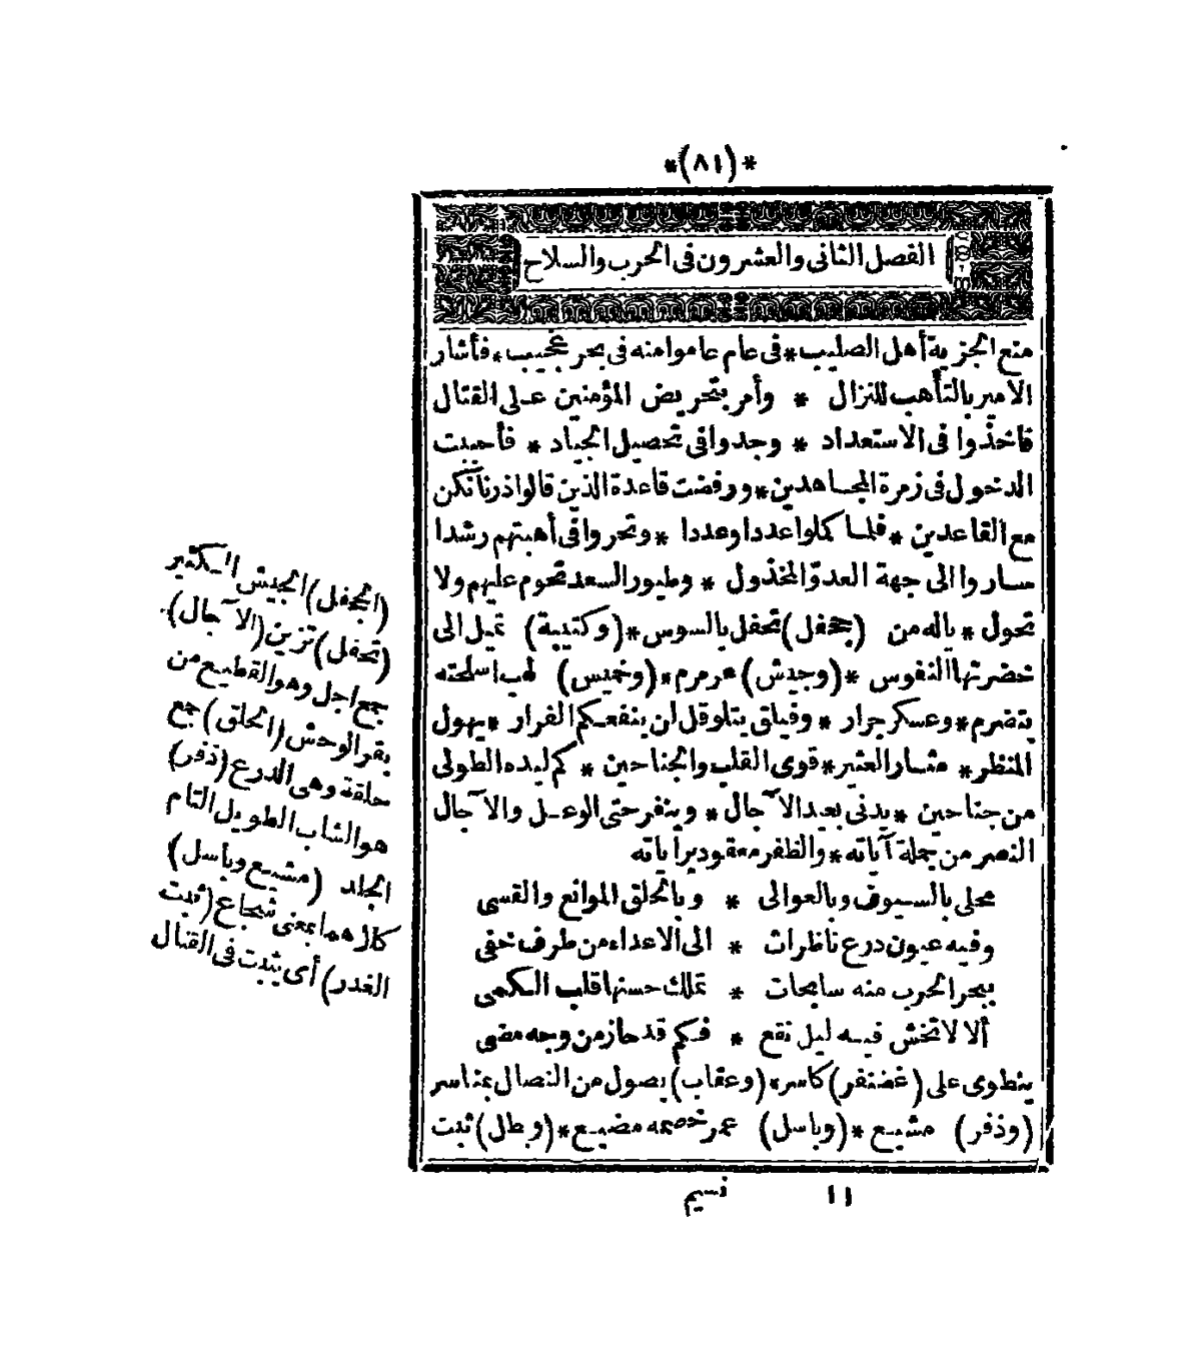 *(٨١)*
الفصل الثانى والعشرون فى الحرب والسلاح
منع الجزية أهل الصليب * فى عام عاموا منه فى بحر عجيب * فأشار
الامير بالتأهب للنزال * وأمر بتحريض المؤمنين على القتال
فاخذوا فى الاستعداد * وجدوا فى تحصيل الجياد * فأحببت
الدخول فى زمرة المجاهدين * ورفضت قاعدة الذين قالوا ذرنا نكن
مع القاعدين * فلما كملوا عددا وعددا * وتحروا فى أهبتهم رشدا
ساروا الى جهة العدو المخذول * وطيور السعد تحوم عليهم ولا
تحول * ياله من (جحفل) تحفل بالسوس * (وكتيبة) تميل الى
خضرتها النفوس * (وجيش) عرمرم * (وخميس) لهب اسلحته
يتضرم * وعسكر جرار * وفيلق يتلو قل لن ينفعكم الفرار * يهول
المنظر * مثار العثير * قوى القلب والجناحين * كم ليده الطولى
من جناحين * يدنى بعيد الآجال * وينفر حتى الوعل والآجال
النصر من جملة آياته * والظفر معقود براياته
محلى بالسيوف وبالعوالى * وبالحلق الموانع والقسى
وفيه عيون درع ناظرات * الى الاعداء من طرف خفى
ببحر الحرب منه سابحات * تملك حسنها قلب الكمى
ألا لا تخش فيه ليل نقع * فكم قد حاز من وجه مضى
ينطوى على (غضنفر) كاسر * (وعقاب) يصول من النصال بمناسر
(وذفر) مشيع * (وباسل) عمر خصمه مضيع * (وبطل) ثبت
(الجحفل) الجيش الكثير
(تحفل) تزين (الآجال)
جمع اجل وهو القطيع من
بقر الوحش (الحلق) جمع
حلقة وهى الدرع (ذفر)
هو الشاب الطويل التام
الجلد (مشيع وباسل)
كلاهما بمعنى شجاع (ثبت
الغدر) أى يثبت فى القتال
١١ نسيم